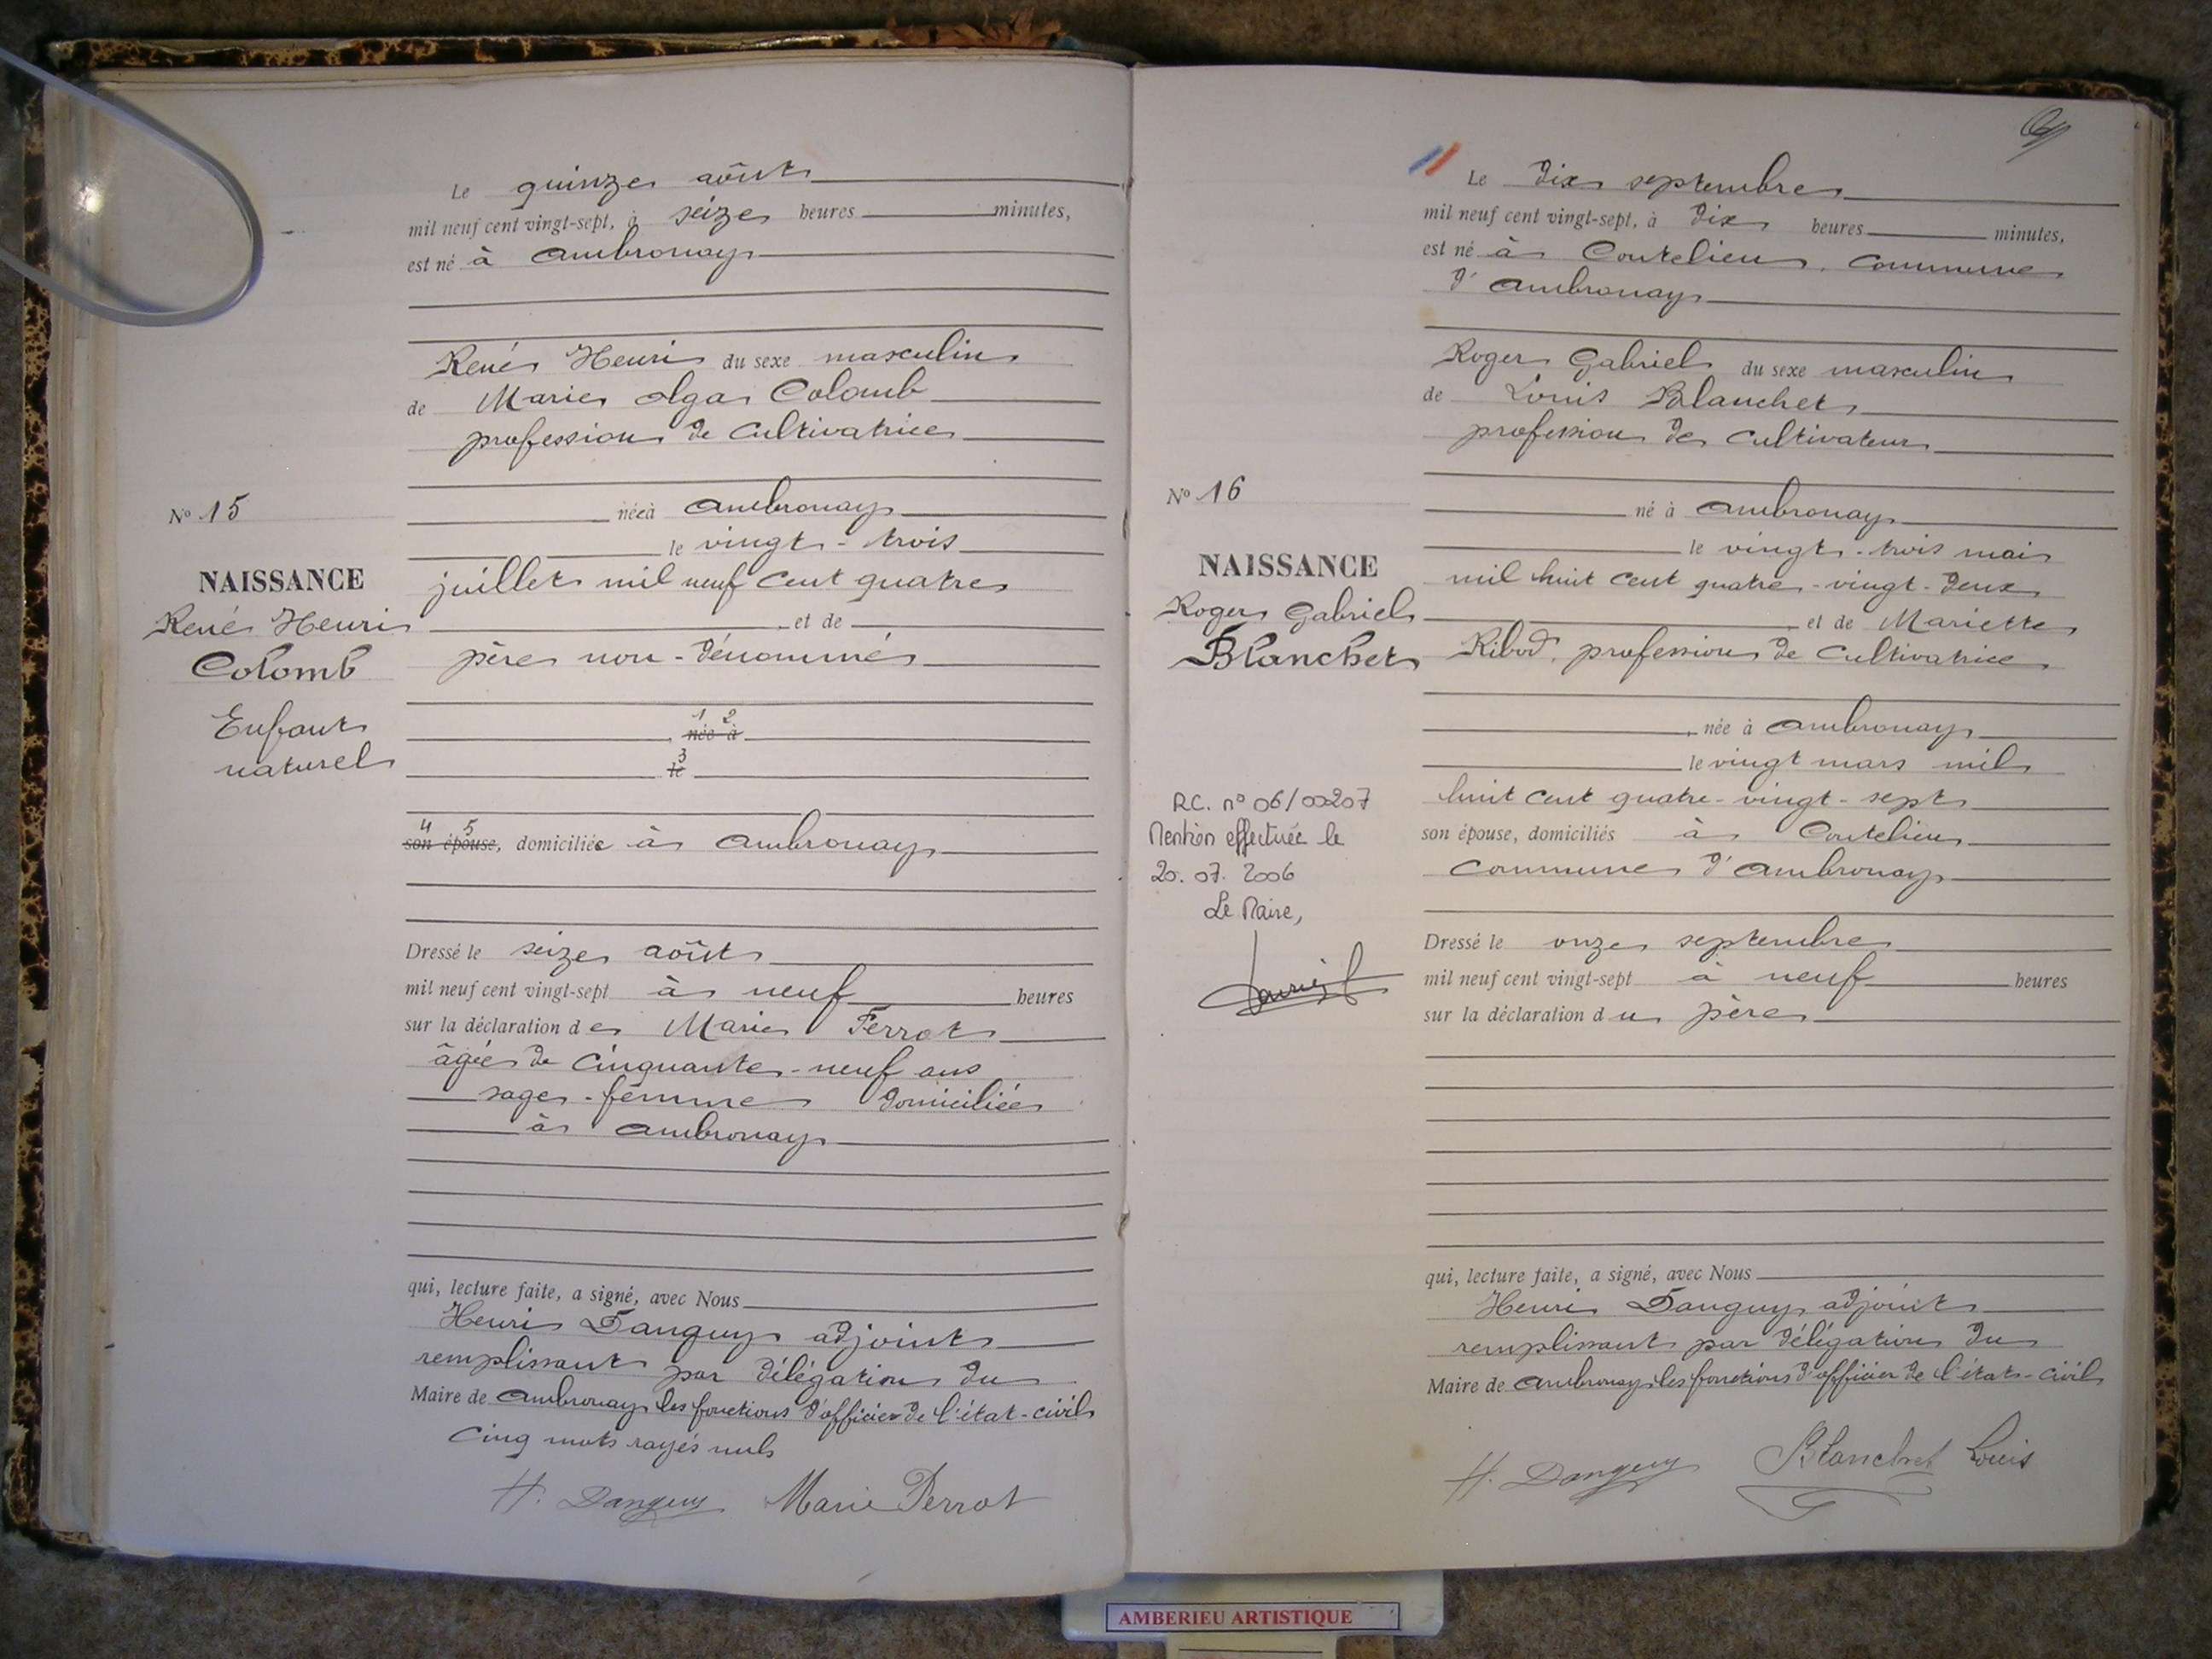 Le quinze août
mil neuf cent vingt-sept, à seize heures minutes,
est né à Ambronay
René Henri du sexe masculin
de Marie Olga Colomb
profession de cultivatrice
née à Ambronay
le vingt-trois
juillet mil neuf cent quatre
et de
père non-dénommé
1 2
née à
3
le
4 5
son épouse, domiciliée à Ambronay
Dressé le seize août
mil neuf cent vingt-sept à neuf heures
sur la déclaration de Marie Perrot
âgée de cinquante-neuf ans
sage-femme domiciliée
à Ambronay
qui, lecture faite, a signé, avec Nous
Henri Danguy adjoint
remplissant par délégation du
Maire de Ambronay les fonctions d'officier de l'état-civil
Cinq mots rayés nuls
H. Danguy Marie Perrot
N° 15
NAISSANCE
René Henri
Colomb
Enfant
naturel
Le dix septembre
mil neuf cent vingt-sept, à dix heures minutes,
est né à Coutelieu, commune
d'Ambronay
Roger Gabriel du sexe masculin
de Louis Blanchet
profession de cultivateur
né à Ambronay
le vingt-trois mai
mil huit cent quatre-vingt-deux
et de Mariette
Ribod, profession de cultivatrice
née à Ambronay
le vingt mars mil
huit cent quatre-vingt-sept
son épouse, domiciliés à Coutelieu
commune d'Ambronay
Dressé le onze septembre
mil neuf cent vingt-sept à neuf heures
sur la déclaration du père
qui, lecture faite, a signé, avec Nous
Henri Danguy adjoint
remplissant par délégation du
Maire de Ambronay les fonctions d'officier de l'état-civil
H. Danguy Blanchet Louis
N° 16
NAISSANCE
Roger Gabriel
Blanchet
RC. n° 06/00207
Mention effectuée le
20.07.2006
Le Maire,
AMBERIEU ARTISTIQUE